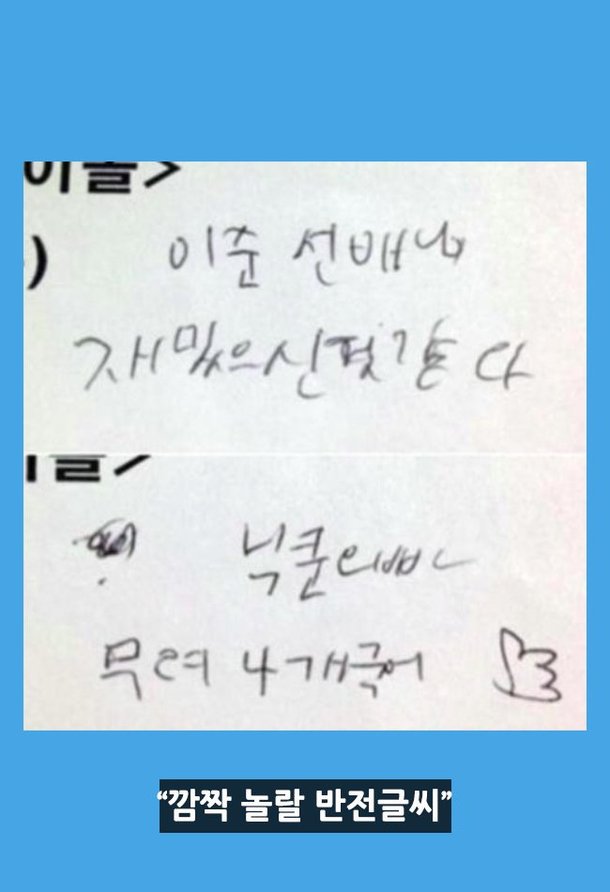 이돌>
)
이준 선배님
재밌으신것같다
닉쿤오빠
무려 4개국어
“깜짝 놀랄 반전글씨”